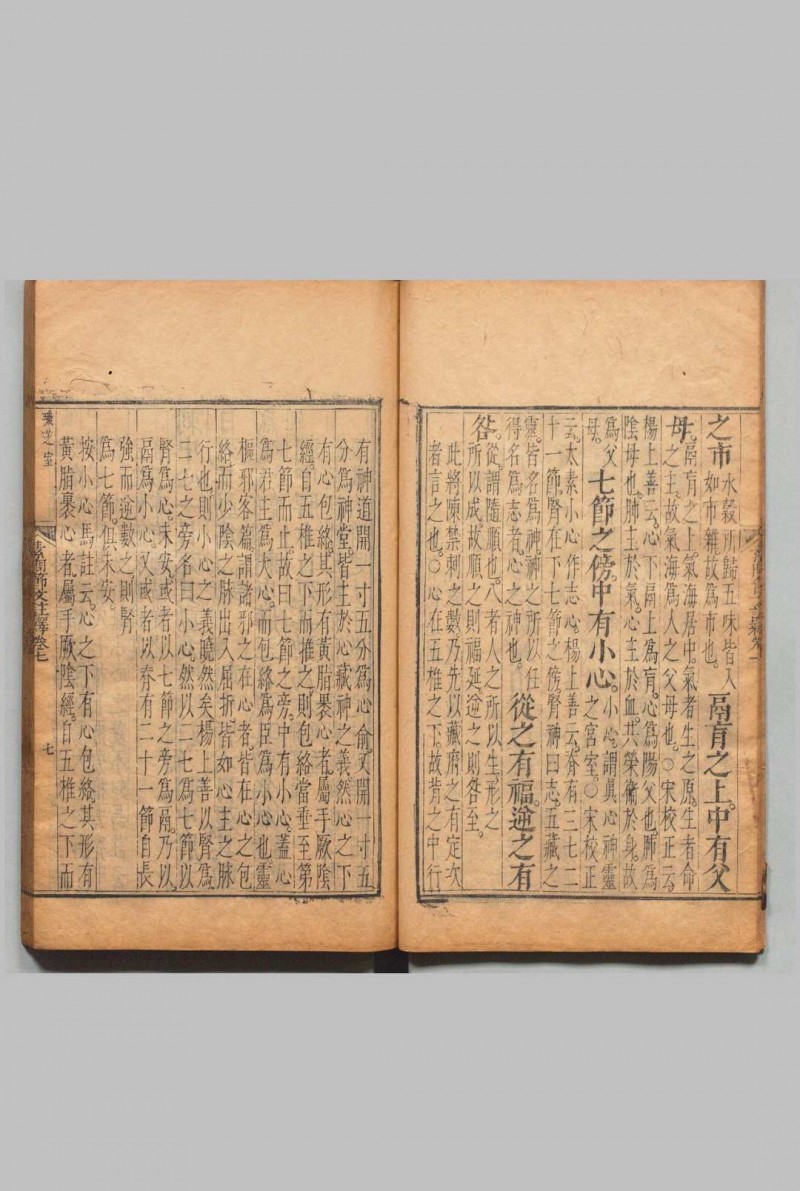 之市水穀所歸五味皆入
如市雜故爲市也鬲肓之上中有父
母鬲肓之上氣海居中氣者生之原生者命
之主故氣海爲人之父母也〇宋校正云
楊上善云心下鬲上爲肓心爲陽父也肺爲
陰母也肺主於氣心主於血共榮衞於身故
爲父母七節之傍中有小心小心謂眞心神靈
之宮室〇宋校正
云太素小心作志心楊上善云脊有三七二
十一節腎在下七節之傍腎神曰志五藏之
靈皆名爲神神之所以任
得名爲志者心之神也從之有福逆之有
咎從謂隨順也八者人之所以生形之
所以成故順之則福延逆之則咎至
此將陳禁刺之數乃先以藏府之有定次
者言之也〇心在五椎之下故背之中行
有神道開一寸五分爲心俞又開一寸五
分爲神堂皆主於心藏神之義然心之下
有心包絡其形有黃脂裹心者屬手厥陰
經自五椎之下而推之則包絡當垂至第
七節而止故曰七節之旁中有小心蓋心
爲君主爲大心而包絡爲臣爲小心也靈
樞邪客篇謂諸邪之在心者皆在心之包
絡而少陰之脉出入屈折皆如心主之脉
行也則小心之義曉然矣楊上善以腎爲
二七之旁名曰小心然以二七爲七節以
腎爲心未安或者以七節之旁爲鬲乃以
鬲爲小心又或者以脊有二十一節自長
強而逆數之則腎
爲七節俱未安
按小心馬註云心之下有心包絡其形有
黃脂裹心者屬手厥陰經自五椎之下而
素問節文註釋卷七
七